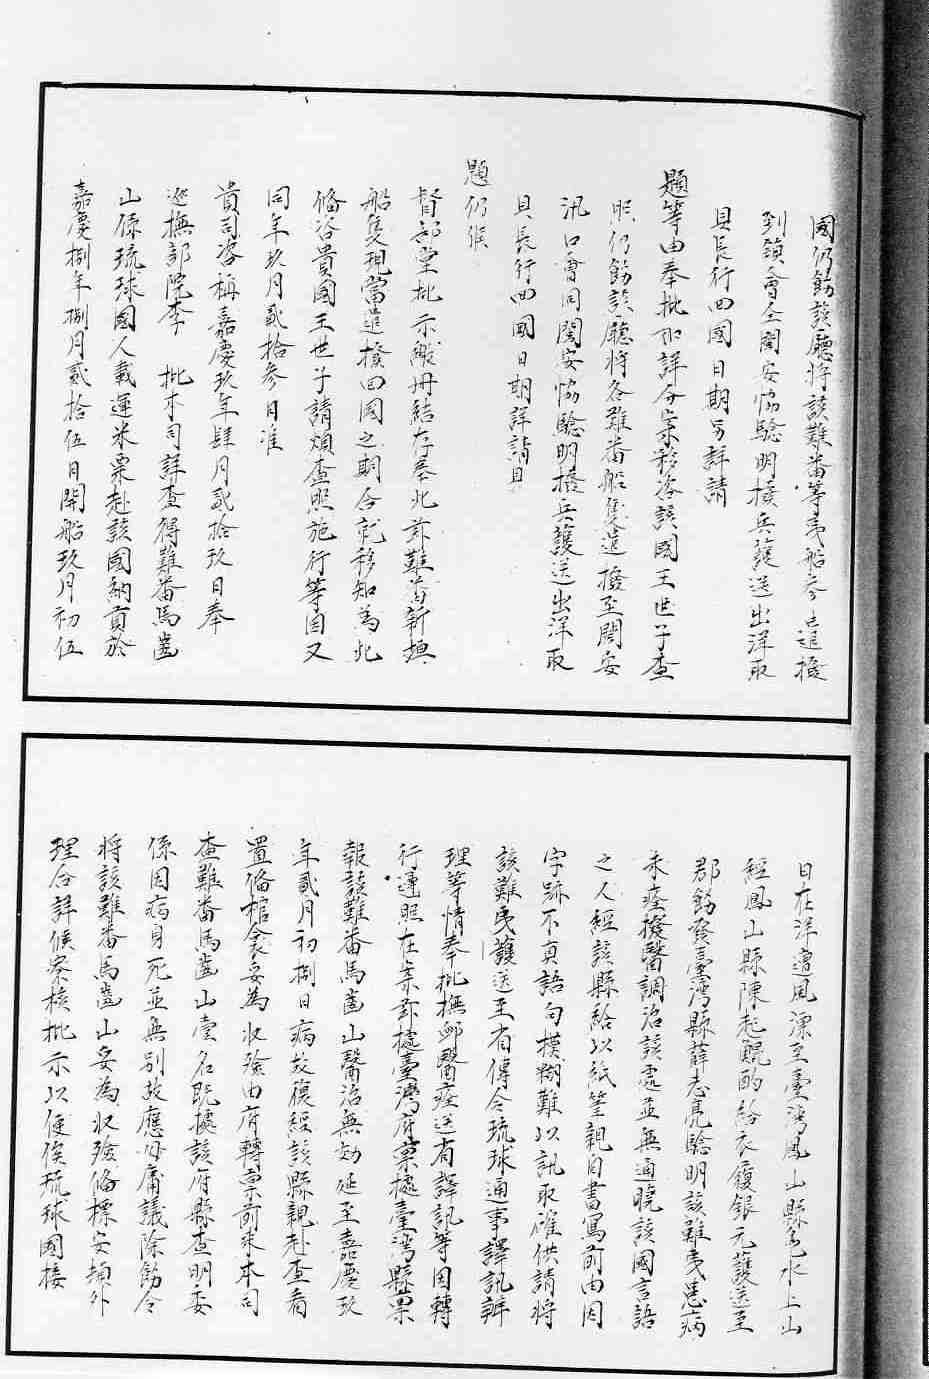 國仍飭該廳將該難番等夷船夯只追撥
到鎮會全閩安協驗明撥兵護送出洋取
具長行回國日期另詳請
題等由奉批如詳分案移咨該國王世子查
照仍飭該廳將各難番船隻遣撥至閩安
汛口會同閩安協驗明撥兵護送出洋取
具長行回國日期詳請具
題仍候
督部堂批示繳册結存奉此茲難番新垣
船隻現當遣撥回國之期合就移知為此
備咨貴國王世子請煩查照施行等因又
同年玖月貳拾參日准
貴司咨稱嘉慶玖年肆月貳拾玖日奉
巡撫部院李 批本司詳查得難番馬齒
山係琉球國人載運米粟赴該國納貢於
嘉慶捌年捌月貳拾伍日開船玖月初伍
日在洋遭風漂至臺灣鳳山縣屯水上山
經鳳山縣陳起鯤酌給衣履銀元護送至
郡飭發臺灣縣薛志亮驗明該難夷患病
未痊撥醫調治該處並無通曉該國言語
之人經該縣給以紙筆親自書寫前由因
字跡不真語句模糊難以訊取確供請將
該難夷護送至省傳令琉球通事譯訊辦
理等情奉批撫卹醫痊送省譯訊等因轉
行遵照在案茲據臺灣府稟據臺灣縣稟
報該難番馬齒山醫治無効延至嘉慶玖
年貳月初捌日病故復經該縣親赴查看
置備棺衾妥為收殮由府轉稟前來本司
查難番馬齒山壹名既據該府縣查明委
係因病身死並無別故應毋庸議除飭令
將該難番馬齒山妥為收殮備標安頓外
理合詳候察核批示以便俟琉球國接